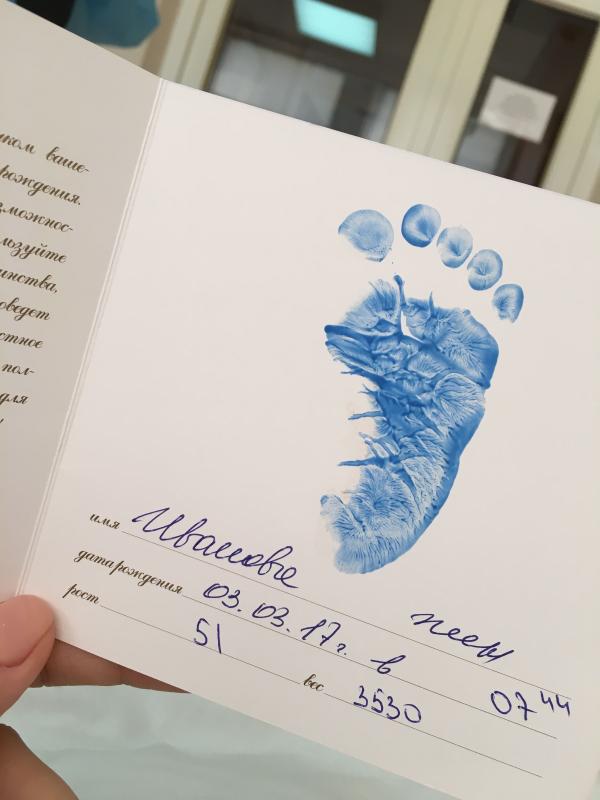 ком ваше-
рождения.
зможнос-
льзуйте
инства,
оведет
стное
пол-
для
!
имя Иванова жен
дата рождения 03.03.17г. в 07 44
рост 51 вес 3530